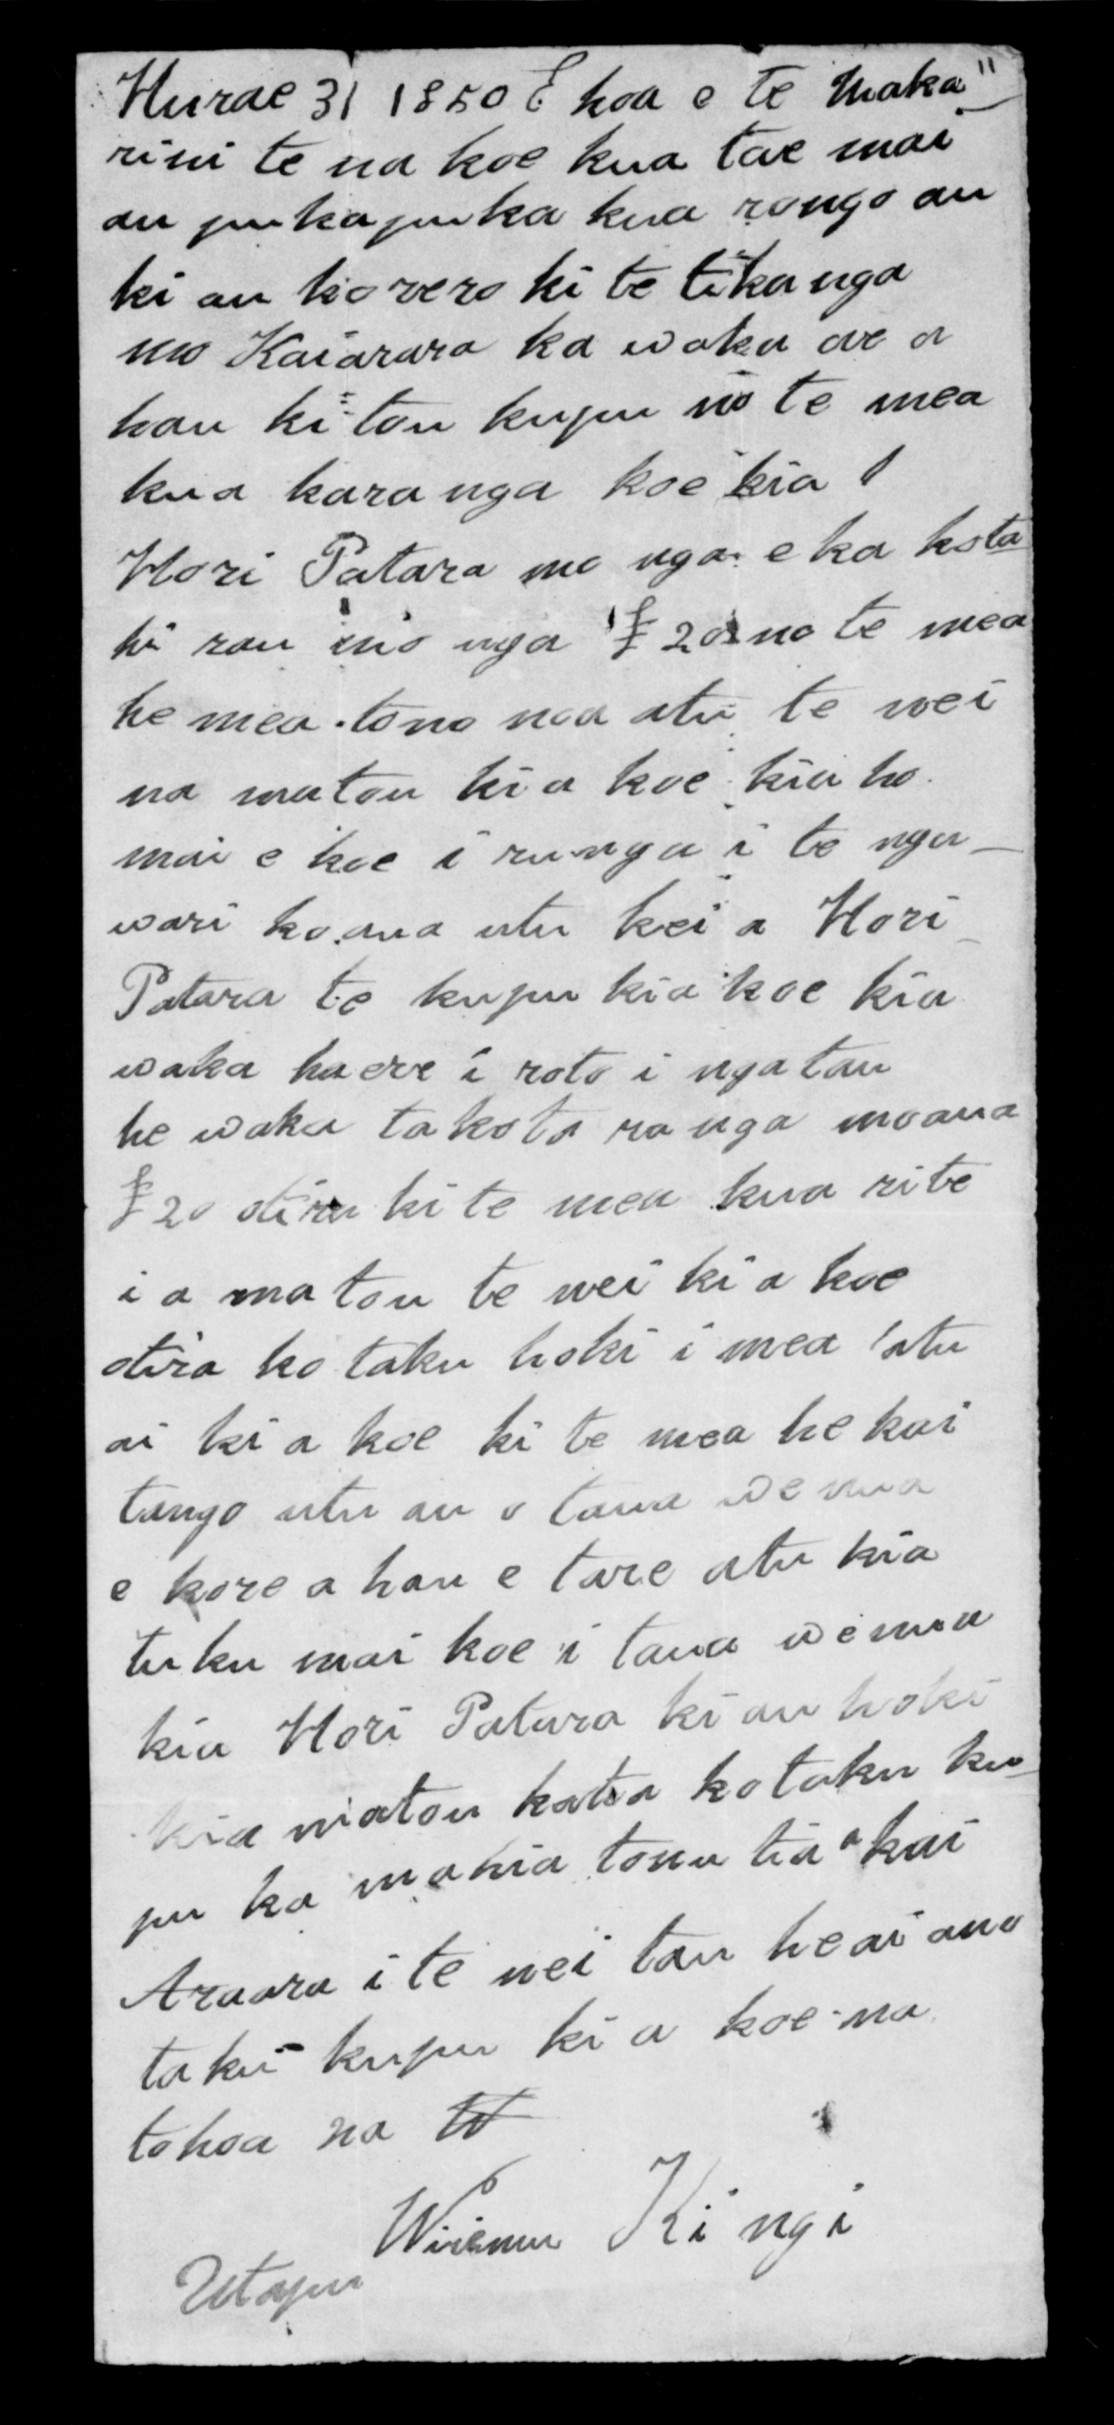 Hurae 31 1850 E hoa e te Maka"
rini te na koe kua tae mai
au pukapuka kua rongo au
ki au korero ki te tikanga
mo Kaiarara ka waka ae a
hau ki tou kupu no te mea
kua karanga koe kia
Hori Patara mo nga eka kota
hi rau mo nga £20 no te mea
he mea tono noa atu te nei
na matou ki a koe kia ho
mai e koe i runga i te nga-
wari ko ana utu kei a Hori
Patara te kupu kia koe kia
waka haere i roto i nga tau
he waka takoto ra nga moana
£20 otira ki te mea kua rite
i a matou te nei ki a koe
otira ko taku hoki i mea atu
ai ki a koe ki te mea he kai
tango utu au o taua wenua
e kore a hau e tare atu kia
tuku mai koe i taua wenua
kia Hori Patara ki au hoki
kia matou katoa ko taku ku-
pu ka mahia tonu tia a kai
Araara i te nei tau heai ano
taku kupu ki a koe na
to hoa na W
Wiremu Kingi
Utapu